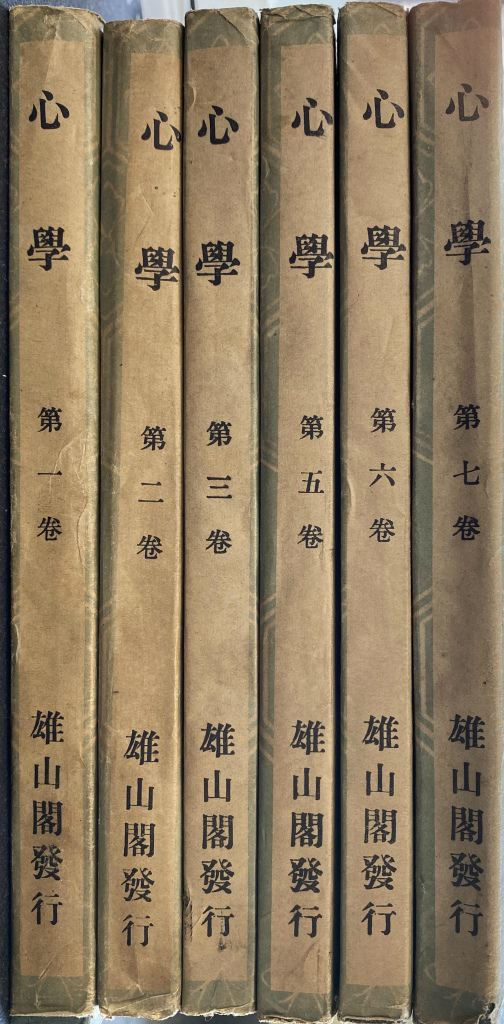 心學 第一卷 雄山閣發行
心學 第二卷 雄山閣發行
心學 第三卷 雄山閣發行
心學 第五卷 雄山閣發行
心學 第六卷 雄山閣發行
心學 第七卷 雄山閣發行